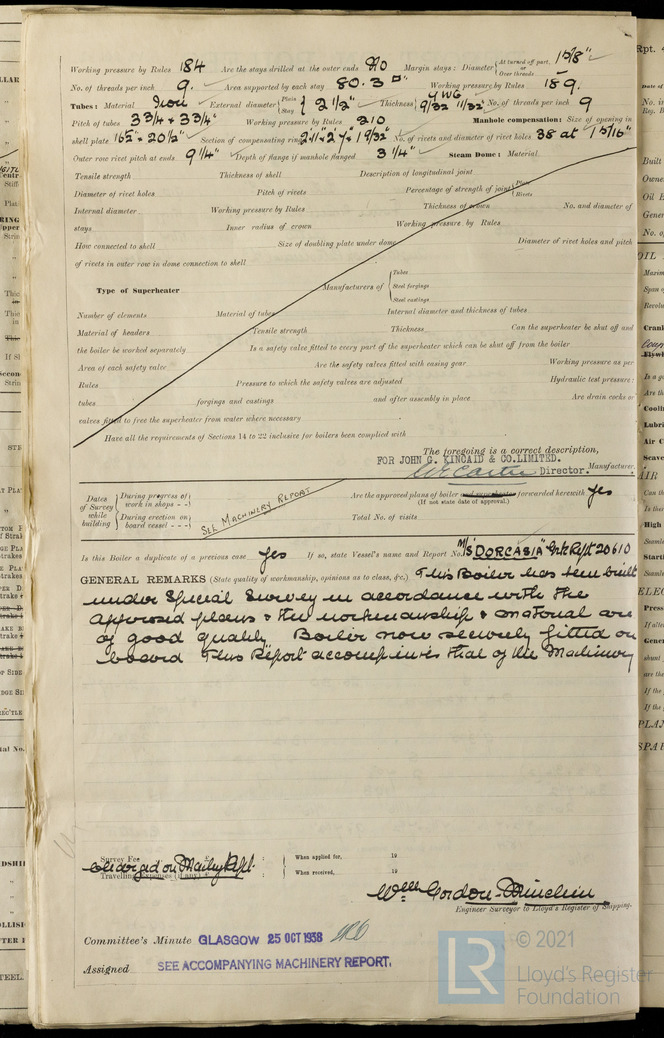 Working pressure by Rules 184 Are the stays drilled at the outer ends No Margin stays: Diameter { At turned off part, 1 5/8" or Over threads
No. of threads per inch 9. Area supported by each stay 80.3 □" Working pressure by Rules 189.
Tubes: Material Iron External diameter { Plain Stay } 2 1/2" Thickness { 9/32 11/32" No. of threads per inch 9
Pitch of tubes 3 3/4 x 3 3/4" Working pressure by Rules 210 Manhole compensation: Size of opening in
shell plate 16 x 20 1/2" Section of compensating ring No. of rivets and diameter of rivet holes 38 at 1 5/16"
Outer row rivet pitch at ends 9 1/4" Depth of flange if manhole flanged 3 1/4" Steam Dome: Material
Tensile strength Thickness of shell Description of longitudinal joint
Diameter of rivet holes Pitch of rivets Percentage of strength of joint { Plate Rivets
Internal diameter Working pressure by Rules Thickness of crown No. and diameter of
stays Inner radius of crown Working pressure by Rules
How connected to shell Size of doubling plate under dome Diameter of rivet holes and pitch
of rivets in outer row in dome connection to shell
Type of Superheater Manufacturers of { Tubes Steel forgings Steel castings
Number of elements Material of tubes Internal diameter and thickness of tubes
Material of headers Tensile strength Thickness Can the superheater be shut off and
the boiler be worked separately Is a safety valve fitted to every part of the superheater which can be shut off from the boiler
Area of each safety valve Are the safety valves fitted with easing gear Working pressure as per
Rules Pressure to which the safety valves are adjusted Hydraulic test pressure:
tubes forgings and castings and after assembly in place Are drain cocks or
valves fitted to free the superheater from water where necessary
Have all the requirements of Sections 14 to 22 inclusive for boilers been complied with
The foregoing is a correct description,
FOR JOHN G. KINCAID & CO. LIMITED.
Director. Manufacturer.
Dates of Survey while building { During progress of work in shops - - During erection on board vessel - - - } See Machinery Report
Are the approved plans of boiler and superheater forwarded herewith Yes
(If not state date of approval.)
Total No. of visits
Is this Boiler a duplicate of a previous case Yes If so, state Vessel's name and Report No. M/S "DORCASIA" Grk Rpt 20610
GENERAL REMARKS (State quality of workmanship, opinions as to class, &c.) This Boiler has been built
under Special Survey in accordance with the
approved plans & the workmanship & material are
of good quality Boiler now securely fitted on
board This Report accompanies that of the Machinery
Survey Fee £ : :
charged on Machy Rpt.
Travelling Expenses (if any) £ : :
When applied for, 19
When received, 19
Wm Gordon-Minchin
Engineer Surveyor to Lloyd's Register of Shipping.
Committee's Minute GLASGOW 25 OCT 1938
Assigned SEE ACCOMPANYING MACHINERY REPORT.
LR © 2021
Lloyd's Register
Foundation